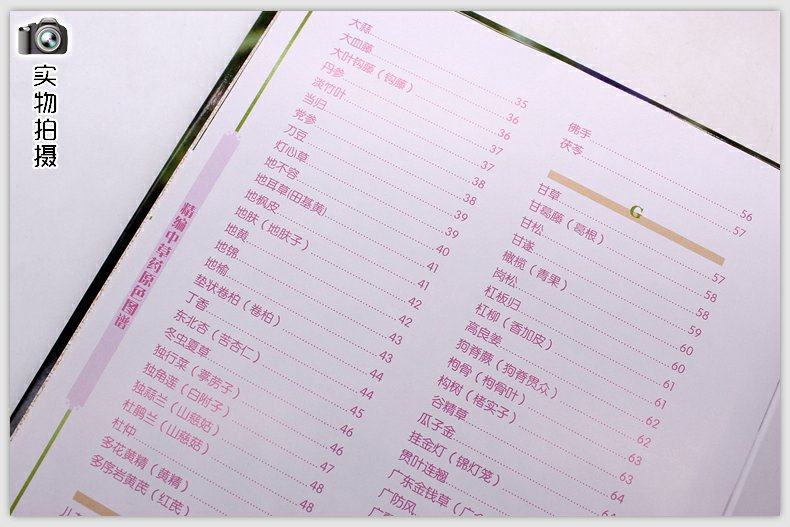 实物拍摄
精编中草药原色图谱
大蒜 35
大血藤 36
大叶钩藤（钩藤） 36
丹参 37
淡竹叶 37
当归 38
党参 38
刀豆 39
灯心草 39
地不容 40
地耳草(田基黄) 41
地枫皮 41
地肤（地肤子） 42
地黄 42
地锦 43
地榆 43
垫状卷柏（卷柏） 44
丁香 44
东北杏（苦杏仁） 45
冬虫夏草 46
独行菜（葶苈子） 46
独角莲（白附子） 47
独蒜兰（山慈菇） 48
杜鹃兰（山慈菇） 48
杜仲
多花黄精（黄精）
多序岩黄芪（红芪）
佛手 56
茯苓 57
G
甘草 57
甘葛藤（葛根） 58
甘松 58
甘遂 59
橄榄（青果） 60
岗松 60
杠板归 61
杠柳（香加皮） 61
高良姜 62
狗脊蕨（狗脊贯众） 62
枸骨（枸骨叶） 63
构树（楮实子） 63
谷精草 64
瓜子金
挂金灯（锦灯笼）
贯叶连翘
广东金钱草（广金
广防风